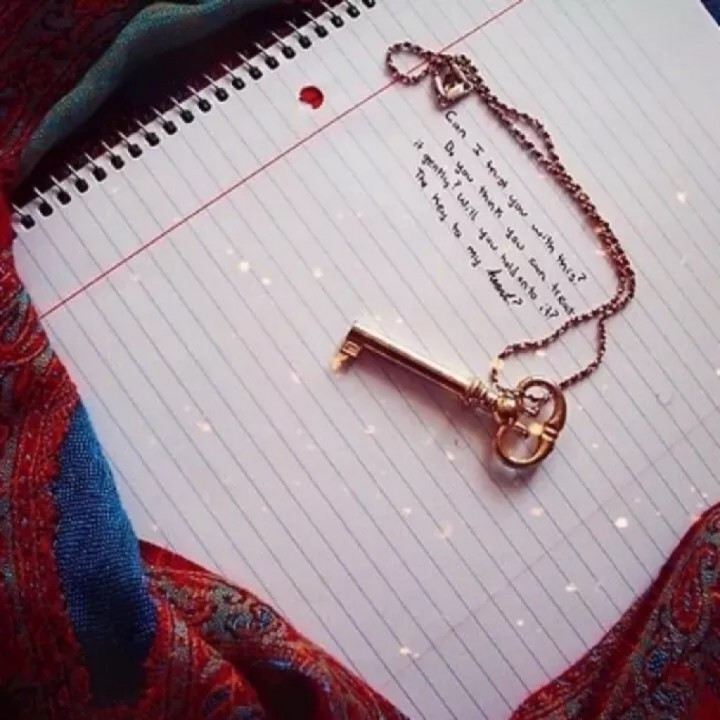 Can I trust you with this?
Do you think you can treat
it gently? Will you hold onto it?
The key to my heart?